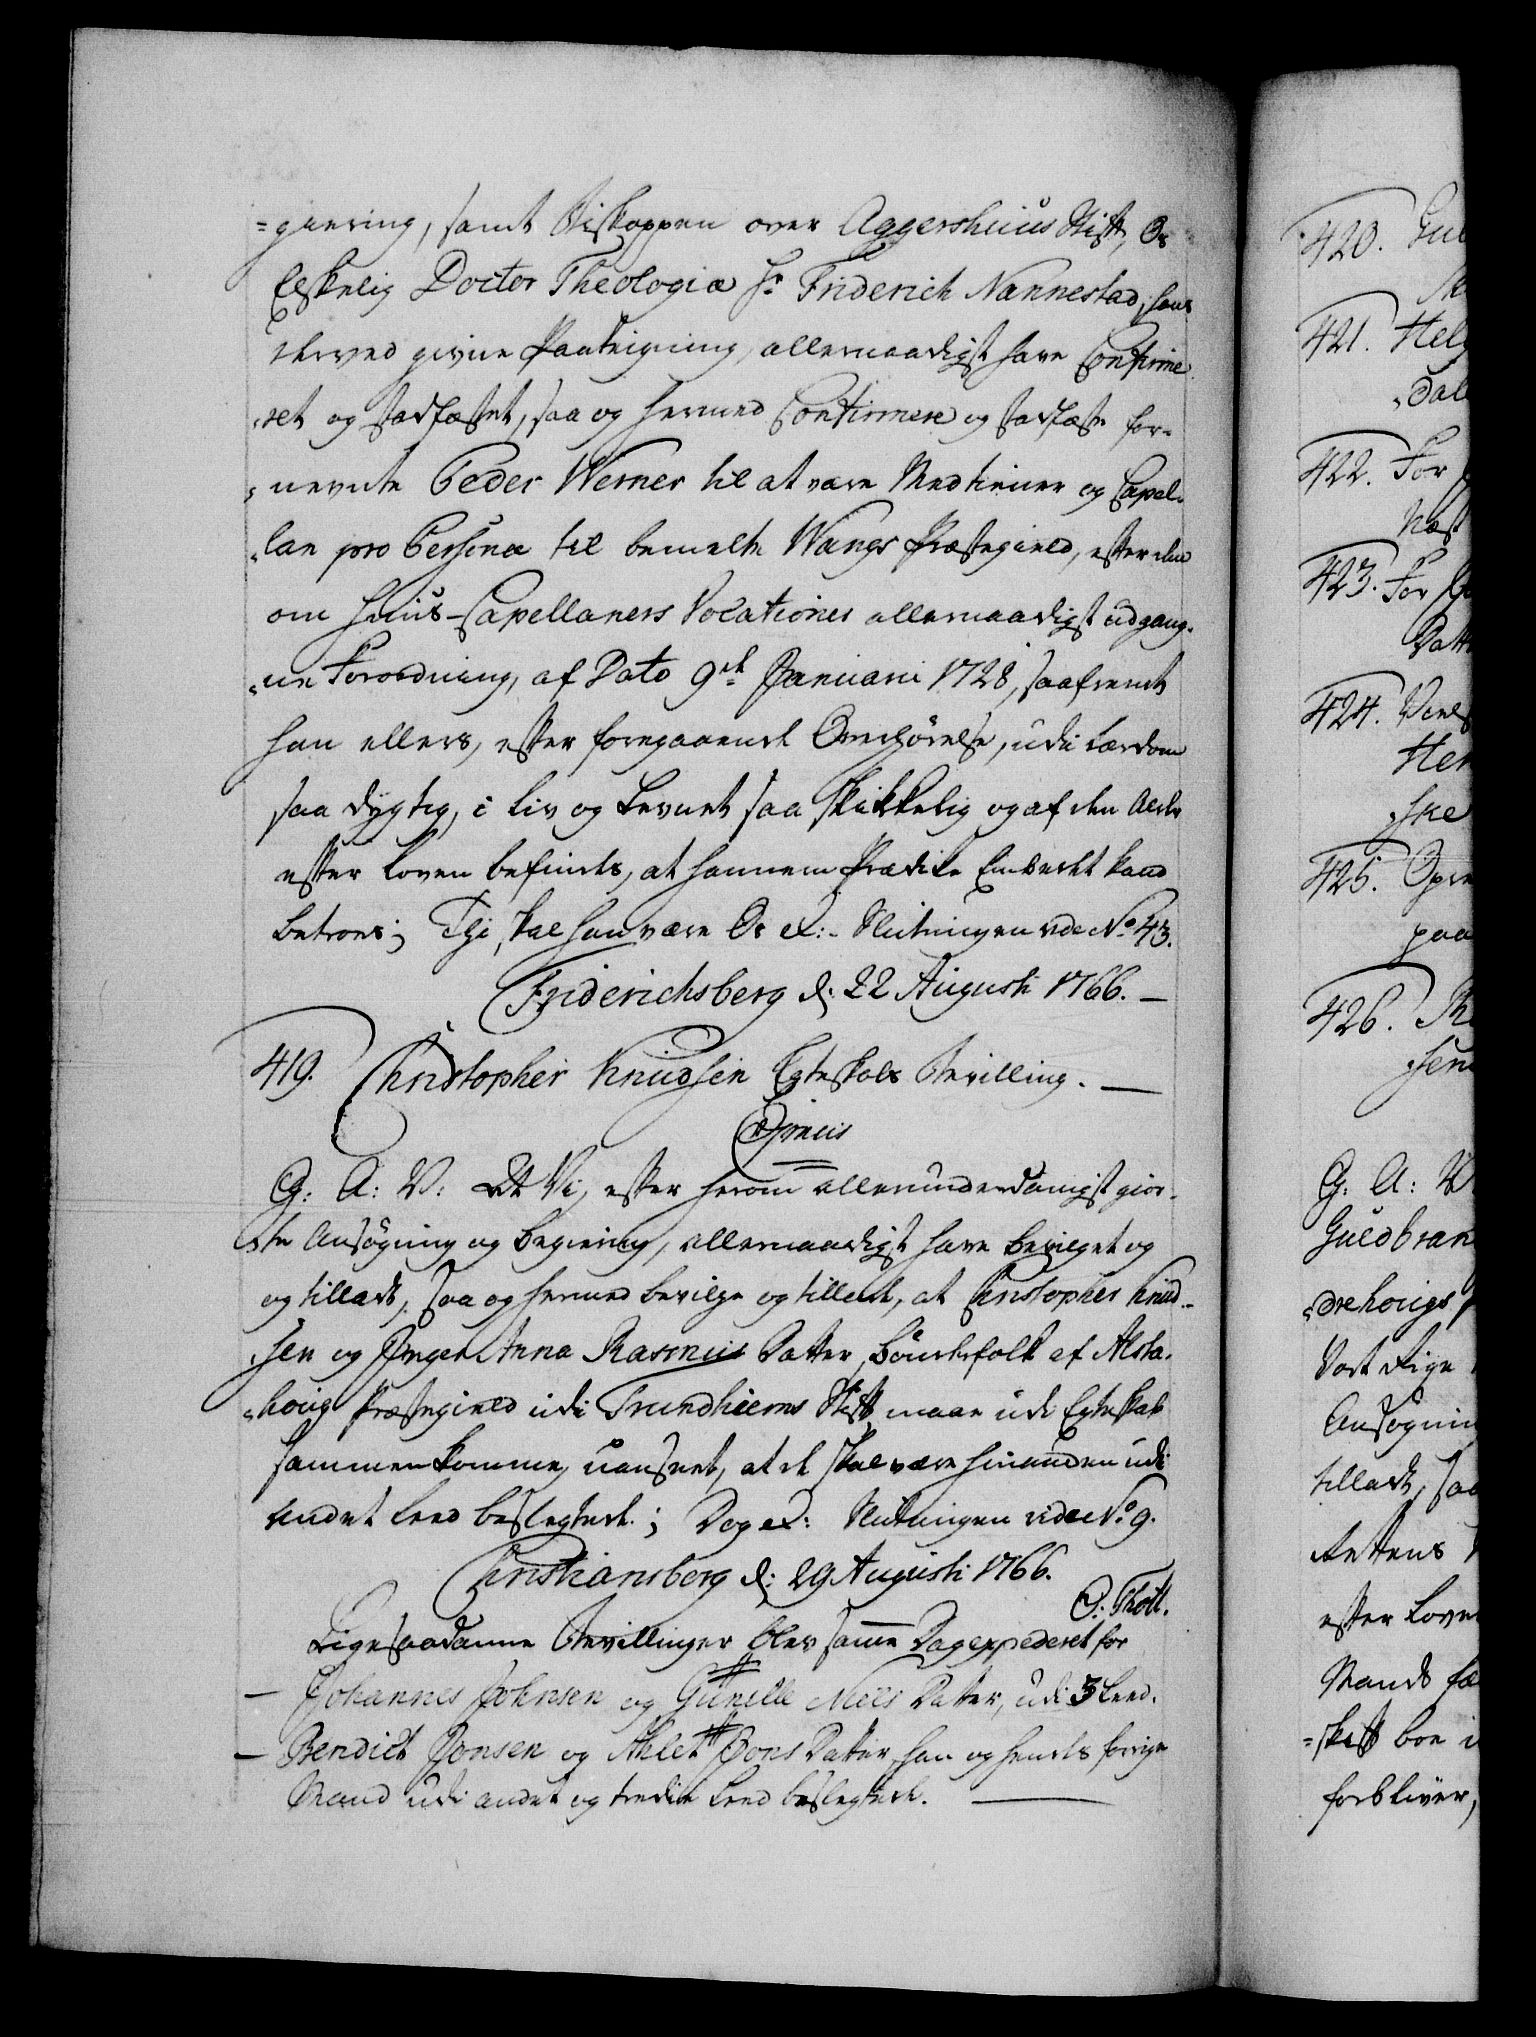 =giæring, samt Biskoppen over Aggershuus Stift, Os
Elskelig Doctor Theologiæ Hr Friderich Nannestad, hans
derved givne Paategning, allernaadigst have Confirme-
=ret og stadfæstet, saa og hermed Confirmere og stadfæste for-
=nevnte Peder Werner til at være Medtiener og Capel-
=lan pro Persona til bemelte Wangs Præstegield, efter den
om Huus-Capellaners Vocationer allernaadigst udgang-
=ne Forordning, af Dato 9de Januarii 1728, saafremt
han ellers, efter foregaaende Overhørelse, udi Lærdom
saa dygtig, i Liv og Levnet saa skikkelig og af den Alder
efter Loven befindes, at hannem Prædike Embedet kand
betroes; Thj skal han være Os et:- Slutningen vide No 43.
Friderichsberg d: 22 Augusti 1766.
419. Christopher Knudsen Egteskabs Bevilling.
Gratis
C: A: V: At Vi, efter herom allerunderdanigst gior-
=te Ansøgning og Begiering, allernaadigst have bevilget og
og tilladt, saa og hermed bevilge og tillade, at Christopher Knud-
=sen og Inger Anna Rasmus Datter, Bøndefolk af Alsta-
=houg Præstegield udi Trundhiems Stift, maae udi Egteskab
sammenkomme, uanseet, at de skal være hinanden udi
andet Leed beslegtede; Dog et: Slutningen vide No 9.
Christiansborg d: 29 Augusti 1766.
O: Thott.
Ligesaadanne Bevillinger blev samme Dag expederet for
— Johannes Johnsen og Gunille Niels Datter, udi 3 Leed.
— Bendict Jonsen og Ahlet Jons Datter, han og hendes forrige
Mand udi andet og tredie Leed beslegtede.
420. Gul
421. Hel
=dal
422. For
Næst
423. For
Datt
424.
Hen
=ske
425. Opre
paa
426.
=sen
C: A: V
Guldbran
=drehougs
Vort Rige
Ansøgnin
tilladt, saa
Rettens
efter Love
Mands
=skift boe i
forbliver,